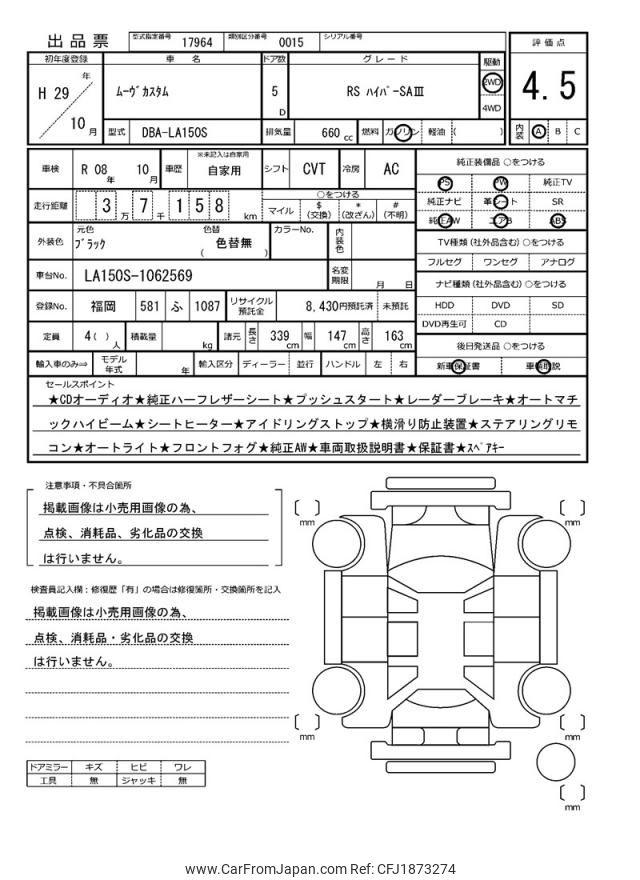 出品票
型式指定番号 17964 類別区分番号 0015 シリアル番号
初年度登録 車名 ドア数 グレード 駆動 評価点
H 29 年 10 月
ﾑｰｳﾞｶｽﾀﾑ 5 D RS ﾊｲﾊﾟｰSAⅢ 2WD 4WD
4.5
型式 DBA-LA150S 排気量 660 cc 燃料 ガソリン 軽油 ( )
内装 A B C
車検 R 08 年 10 月 車歴 ※未記入は自家用 自家用 シフト CVT 冷房 AC
純正装備品 ○をつける
PS PW 純正TV
純正ナビ 革シート SR
純正AW エアB ABS
走行距離 3 万 7 千 1 5 8 km
○をつける
マイル $ (交換) * (改ざん) # (不明)
外装色 元色 ﾌﾞﾗｯｸ 色替 ( 色替無 ) カラーNo. 内装色
TV種類 (社外品含む) ○をつける
フルセグ ワンセグ アナログ
車台No. LA150S-1062569 名変期限 月 日
ナビ種類 (社外品含む) ○をつける
HDD DVD SD
DVD再生可 CD
登録No. 福岡 581 ふ 1087 リサイクル預託金 8,430円預託済 未預託
定員 4 ( ) 人 積載量 kg 諸元 長さ 339 cm 幅 147 cm 高さ 163 cm
後日発送品 ○をつける
新車保証書 車輌取説
輸入車のみ⇒ モデル年式 年 輸入区分 ディーラー 並行 ハンドル 左 右
セールスポイント
★CDオーディオ★純正ハーフレザーシート★プッシュスタート★レーダーブレーキ★オートマチ
ックハイビーム★シートヒーター★アイドリングストップ★横滑り防止装置★ステアリングリモ
コン★オートライト★フロントフォグ★純正AW★車両取扱説明書★保証書★ｽﾍﾟｱｷｰ
注意事項・不具合箇所
掲載画像は小売用画像の為、
点検、消耗品、劣化品の交換
は行いません。
検査員記入欄：修復歴「有」の場合は修復箇所・交換箇所を記入
掲載画像は小売用画像の為、
点検、消耗品・劣化品の交換
は行いません。
mm
mm
mm
mm
mm
ドアミラー キズ ヒビ ワレ
工具 無 ジャッキ 無
www.CarFromJapan.com Ref: CFJ1873274